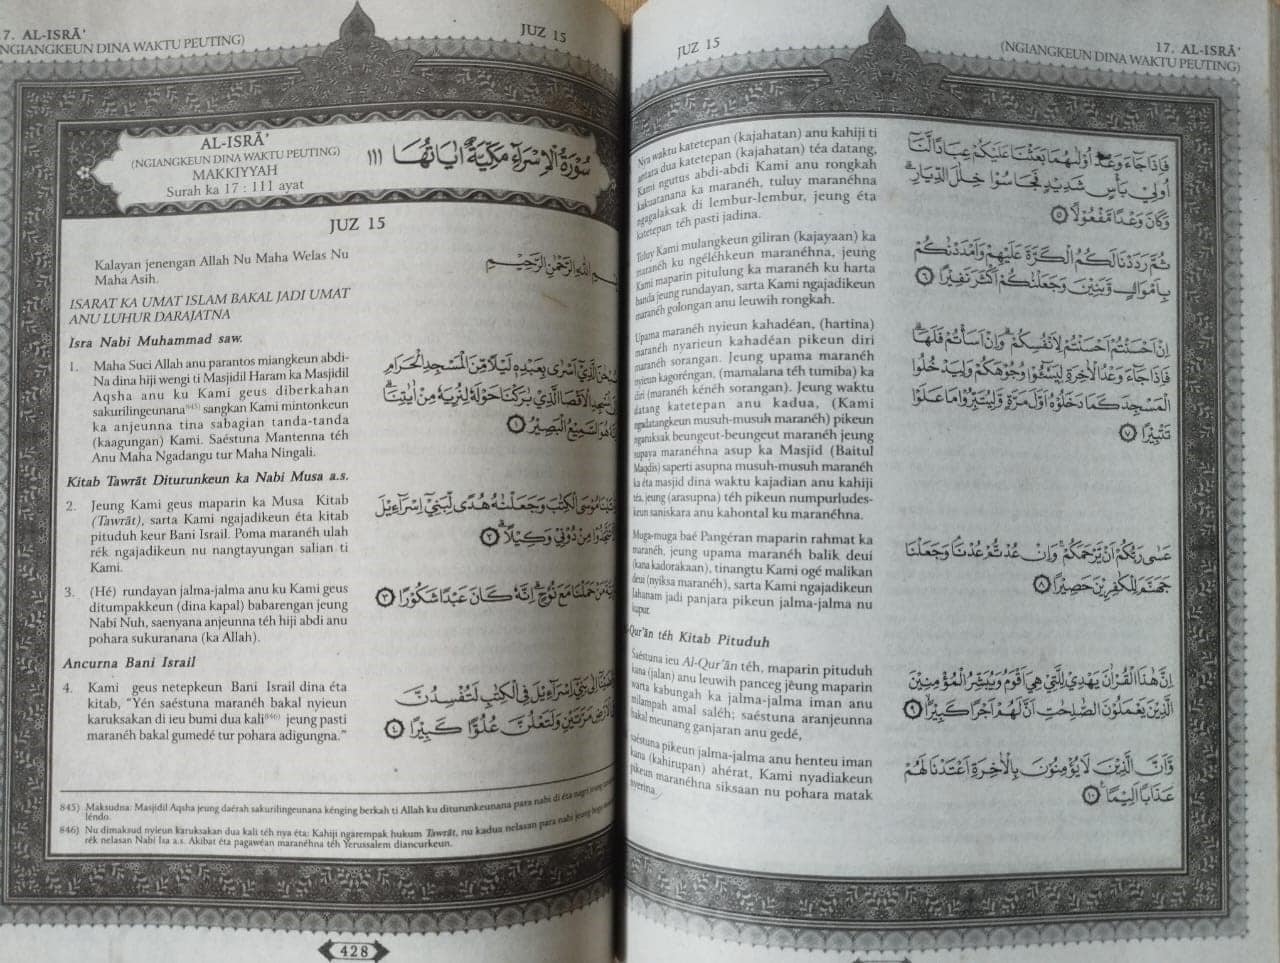 17. AL-ISRĀ'
(NGIANGKEUN DINA WAKTU PEUTING)
JUZ 15
AL-ISRĀ'
(NGIANGKEUN DINA WAKTU PEUTING)
MAKKIYYAH
Surah ka 17 : 111 ayat
سُورَةُ الْإِسْرَاءِ مَكِّيَّةٌ اٰيَاتُهَا ١١١
JUZ 15
Kalayan jenengan Allah Nu Maha Welas Nu
Maha Asih.
بِسْمِ اللهِ الرَّحْمٰنِ الرَّحِيْمِ
ISARAT KA UMAT ISLAM BAKAL JADI UMAT
ANU LUHUR DARAJATNA
Isra Nabi Muhammad saw.
1. Maha Suci Allah anu parantos miangkeun abdi-
Na dina hiji wengi ti Masjidil Haram ka Masjidil
Aqsha anu ku Kami geus diberkahan
sakurilingeunana⁸⁴⁵⁾ sangkan Kami mintonkeun
ka anjeunna tina sabagian tanda-tanda
(kaagungan) Kami. Saéstuna Mantenna téh
Anu Maha Ngadangu tur Maha Ningali.
سُبْحٰنَ الَّذِيْٓ اَسْرٰى بِعَبْدِهٖ لَيْلًا مِّنَ الْمَسْجِدِ الْحَرَامِ
الْمَسْجِدِ الْاَقْصَا الَّذِيْ بٰرَكْنَا حَوْلَهٗ لِنُرِيَهٗ مِنْ اٰيٰتِنَاۗ
هُوَ السَّمِيْعُ الْبَصِيْرُ ۝١
Kitab Tawrāt Diturunkeun ka Nabi Musa a.s.
2. Jeung Kami geus maparin ka Musa Kitab
(Tawrāt), sarta Kami ngajadikeun éta kitab
pituduh keur Bani Israil. Poma maranéh ulah
rék ngajadikeun nu nangtayungan salian ti
Kami.
مُوْسَى الْكِتٰبَ وَجَعَلْنٰهُ هُدًى لِّبَنِيْٓ اِسْرَاۤءِيْلَ
تَتَّخِذُوْا مِنْ دُوْنِيْ وَكِيْلًاۗ ۝٢
3. (Hé) rundayan jalma-jalma anu ku Kami geus
ditumpakkeun (dina kapal) babarengan jeung
Nabi Nuh, saenyana anjeunna téh hiji abdi anu
pohara sukuranana (ka Allah).
مَنْ حَمَلْنَا مَعَ نُوْحٍۗ اِنَّهٗ كَانَ عَبْدًا شَكُوْرًا ۝٣
Ancurna Bani Israil
4. Kami geus netepkeun Bani Israil dina éta
kitab, "Yén saéstuna maranéh bakal nyieun
karuksakan di ieu bumi dua kali⁸⁴⁶⁾ jeung pasti
maranéh bakal gumedé tur pohara adigungna."
اِلٰى بَنِيْٓ اِسْرَاۤءِيْلَ فِى الْكِتٰبِ لَتُفْسِدُنَّ
الْاَرْضِ مَرَّتَيْنِ وَلَتَعْلُنَّ عُلُوًّا كَبِيْرًا ۝٤
845) Maksudna: Masjidil Aqsha jeung daérah sakurilingeunana kénging berkah ti Allah ku diturunkeunana para nabi di éta nagri jeung
léndo.
846) Nu dimaksud nyieun karuksakan dua kali téh nya éta: Kahiji ngarempak hukum Tawrāt, nu kadua nelasan para nabi jeung
rék nelasan Nabi Isa a.s. Akibat éta pagawéan maranéhna téh Yerussalem diancurkeun.
428
JUZ 15
17. AL-ISRĀ'
(NGIANGKEUN DINA WAKTU PEUTING)
Nya waktu katetepan (kajahatan) anu kahiji ti
antara dua katetepan (kajahatan) téa datang,
Kami ngutus abdi-abdi Kami anu rongkah
kakuatanana ka maranéh, tuluy maranéhna
ngagalaksak di lembur-lembur, jeung éta
katetepan téh pasti jadina.
فَاِذَا جَاۤءَ وَعْدُ اُوْلٰىهُمَا بَعَثْنَا عَلَيْكُمْ عِبَادًا لَّنَآ
اُولِيْ بَأْسٍ شَدِيْدٍ فَجَاسُوْا خِلٰلَ الدِّيَارِۗ
وَكَانَ وَعْدًا مَّفْعُوْلًا ۝٥
Tuluy Kami mulangkeun giliran (kajayaan) ka
maranéh ku ngéléhkeun maranéhna, jeung
Kami maparin pitulung ka maranéh ku harta
banda jeung rundayan, sarta Kami ngajadikeun
maranéh golongan anu leuwih rongkah.
ثُمَّ رَدَدْنَا لَكُمُ الْكَرَّةَ عَلَيْهِمْ وَاَمْدَدْنٰكُمْ
بِاَمْوَالٍ وَّبَنِيْنَ وَجَعَلْنٰكُمْ اَكْثَرَ نَفِيْرًا ۝٦
Upama maranéh nyieun kahadéan, (hartina)
maranéh nyarieun kahadéan pikeun diri
maranéh sorangan. Jeung upama maranéh
nyieun kagoréngan, (mamalana téh tumiba) ka
diri (maranéh kénéh sorangan). Jeung waktu
datang katetepan anu kadua, (Kami
ngadatangkeun musuh-musuh maranéh) pikeun
nganiksak beungeut-beungeut maranéh jeung
supaya maranéhna asup ka Masjid (Baitul
Maqdis) saperti asupna musuh-musuh maranéh
ka éta masjid dina waktu kajadian anu kahiji
téa, jeung (arasupna) téh pikeun numpurludes-
keun saniskara anu kahontal ku maranéhna.
اِنْ اَحْسَنْتُمْ اَحْسَنْتُمْ لِاَنْفُسِكُمْۗ وَاِنْ اَسَأْتُمْ فَلَهَاۗ
فَاِذَا جَاۤءَ وَعْدُ الْاٰخِرَةِ لِيَسُوْۤءُوْا وُجُوْهَكُمْ وَلِيَدْخُلُوا
الْمَسْجِدَ كَمَا دَخَلُوْهُ اَوَّلَ مَرَّةٍ وَّلِيُتَبِّرُوْا مَا عَلَوْا
تَتْبِيْرًا ۝٧
Muga-muga baé Pangéran maparin rahmat ka
maranéh, jeung upama maranéh balik deui
(kana kadorakaan), tinangtu Kami ogé malikan
deui (nyiksa maranéh), sarta Kami ngajadikeun
Jahanam jadi panjara pikeun jalma-jalma nu
kapur.
عَسٰى رَبُّكُمْ اَنْ يَّرْحَمَكُمْۚ وَاِنْ عُدْتُّمْ عُدْنَاۘ وَجَعَلْنَا
جَهَنَّمَ لِلْكٰفِرِيْنَ حَصِيْرًا ۝٨
-Qur'ān téh Kitab Pituduh
Saéstuna ieu Al-Qur'ān téh, maparin pituduh
kana (jalan) anu leuwih panceg jeung maparin
warta kabungah ka jalma-jalma iman anu
milampah amal saléh; saéstuna aranjeunna
bakal meunang ganjaran anu gedé,
اِنَّ هٰذَا الْقُرْاٰنَ يَهْدِيْ لِلَّتِيْ هِيَ اَقْوَمُ وَيُبَشِّرُ الْمُؤْمِنِيْنَ
الَّذِيْنَ يَعْمَلُوْنَ الصّٰلِحٰتِ اَنَّ لَهُمْ اَجْرًا كَبِيْرًا ۝٩
saéstuna pikeun jalma-jalma anu henteu iman
kana (kahirupan) ahérat, Kami nyadiakeun
pikeun maranéhna siksaan nu pohara matak
nyerina.
وَّاَنَّ الَّذِيْنَ لَا يُؤْمِنُوْنَ بِالْاٰخِرَةِ اَعْتَدْنَا لَهُمْ
عَذَابًا اَلِيْمًا ۝١٠